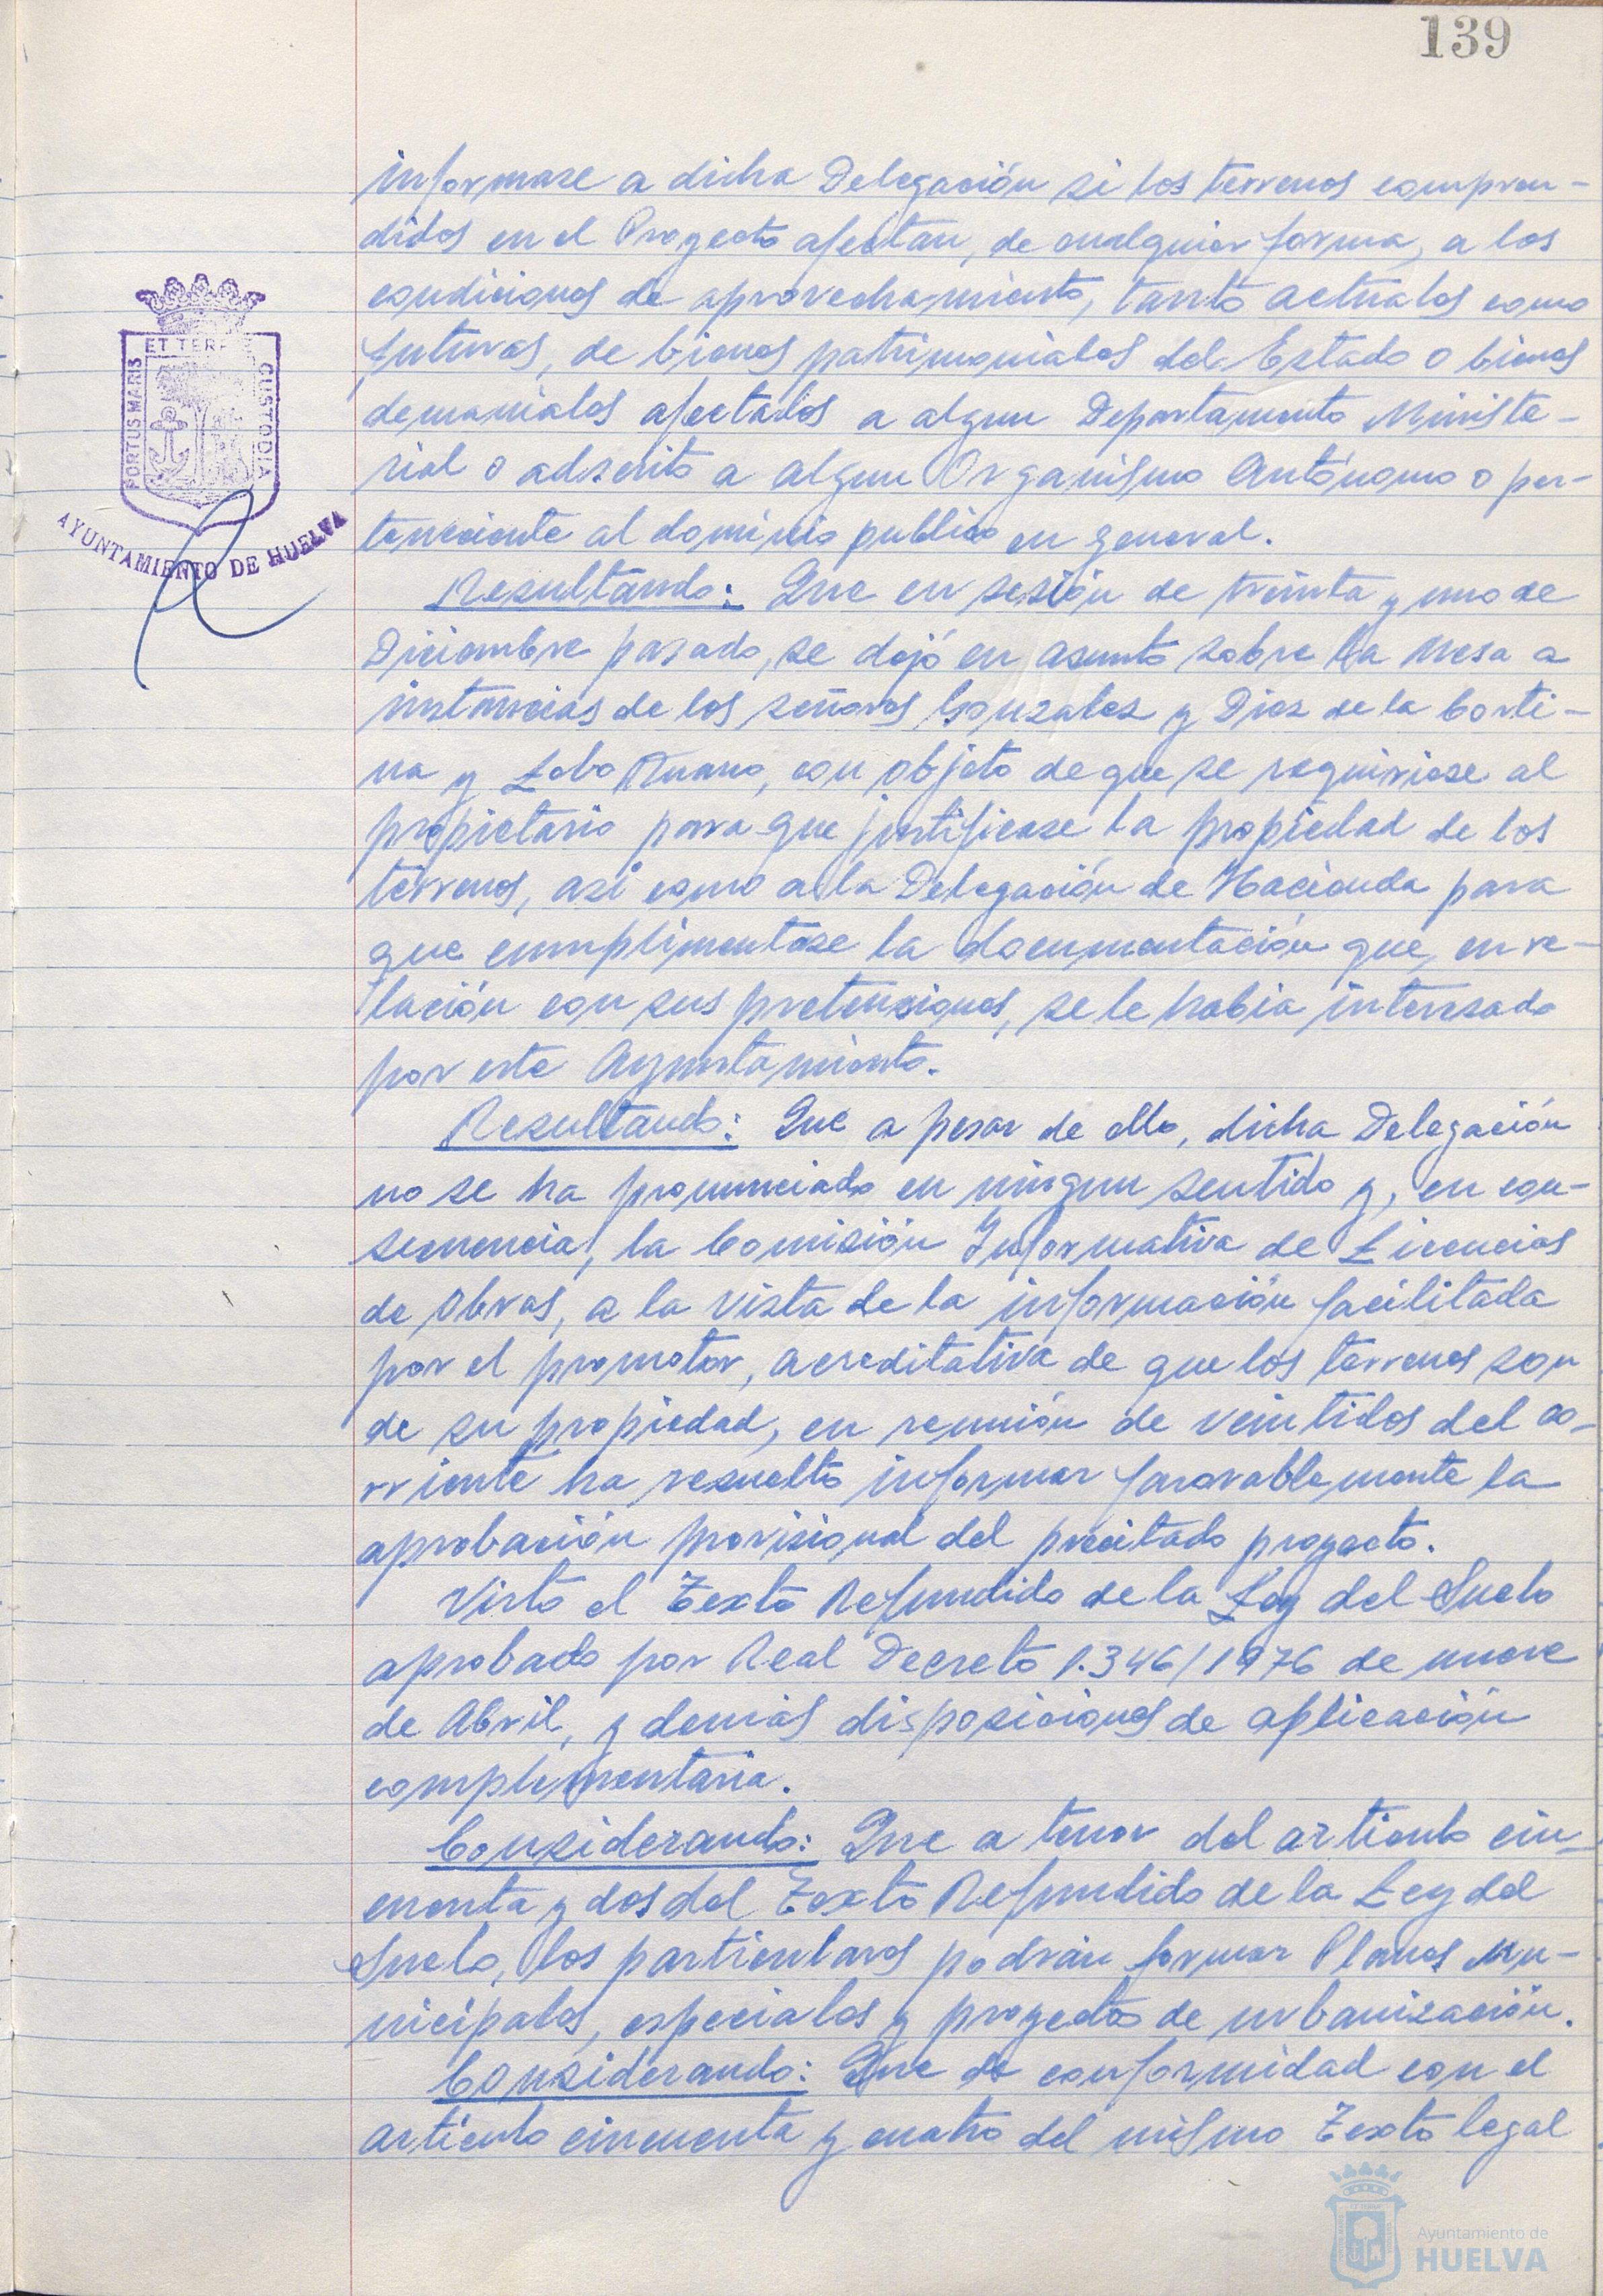 139
informase a dicha Delegación si los terrenos compren-
didos en el Proyecto afectan, de cualquier forma, a los
condiciones de aprovechamiento, tanto actuales como
futuras, de bienes patrimoniales del Estado o bienes
demaniales afectados a algun Departamento Ministe-
rial o adscrito a algun Organismo Autónomo o per-
teneciente al dominio publico en general.
Resultando: Que en sesión de treinta y uno de
Diciembre pasado, se dejó en asunto sobre la Mesa a
instancias de los señores Gonzalez y Diez de la Corti-
na y Lobo Ruano, con objeto de que se requiriese al
propietario para que justificase la propiedad de los
terrenos, asi como a la Delegación de Hacienda para
que cumplimentase la documentación que, en re-
lación con sus pretensiones, se le habia interesado
por este Ayuntamiento.
Resultando: Que a pesar de ello, dicha Delegación
no se ha pronunciado en ningun sentido y, en con-
secuencia, la Comisión Informativa de Licencias
de Obras, a la vista de la información facilitada
por el promotor, acreditativa de que los terrenos son
de su propiedad, en reunión de veintidos del co-
rriente ha resuelto informar favorablemente la
aprobación provisional del precitado proyecto.
Visto el Texto Refundido de la Ley del Suelo
aprobado por Real Decreto 1.346/1976 de nueve
de Abril, y demás disposiciones de aplicación
complementaria.
Considerando: Que a tenor del articulo cin-
cuenta y dos del Texto Refundido de la Ley del
Suelo, los particulares podrán formar Planes Mu-
nicipales, especiales y proyectos de urbanización.
Considerando: Que de conformidad con el
articulo cincuenta y cuatro del mismo Texto legal
PORTUS MARIS
ET TERRE
CUSTODIA
AYUNTAMIENTO DE HUELVA
Ayuntamiento de
HUELVA